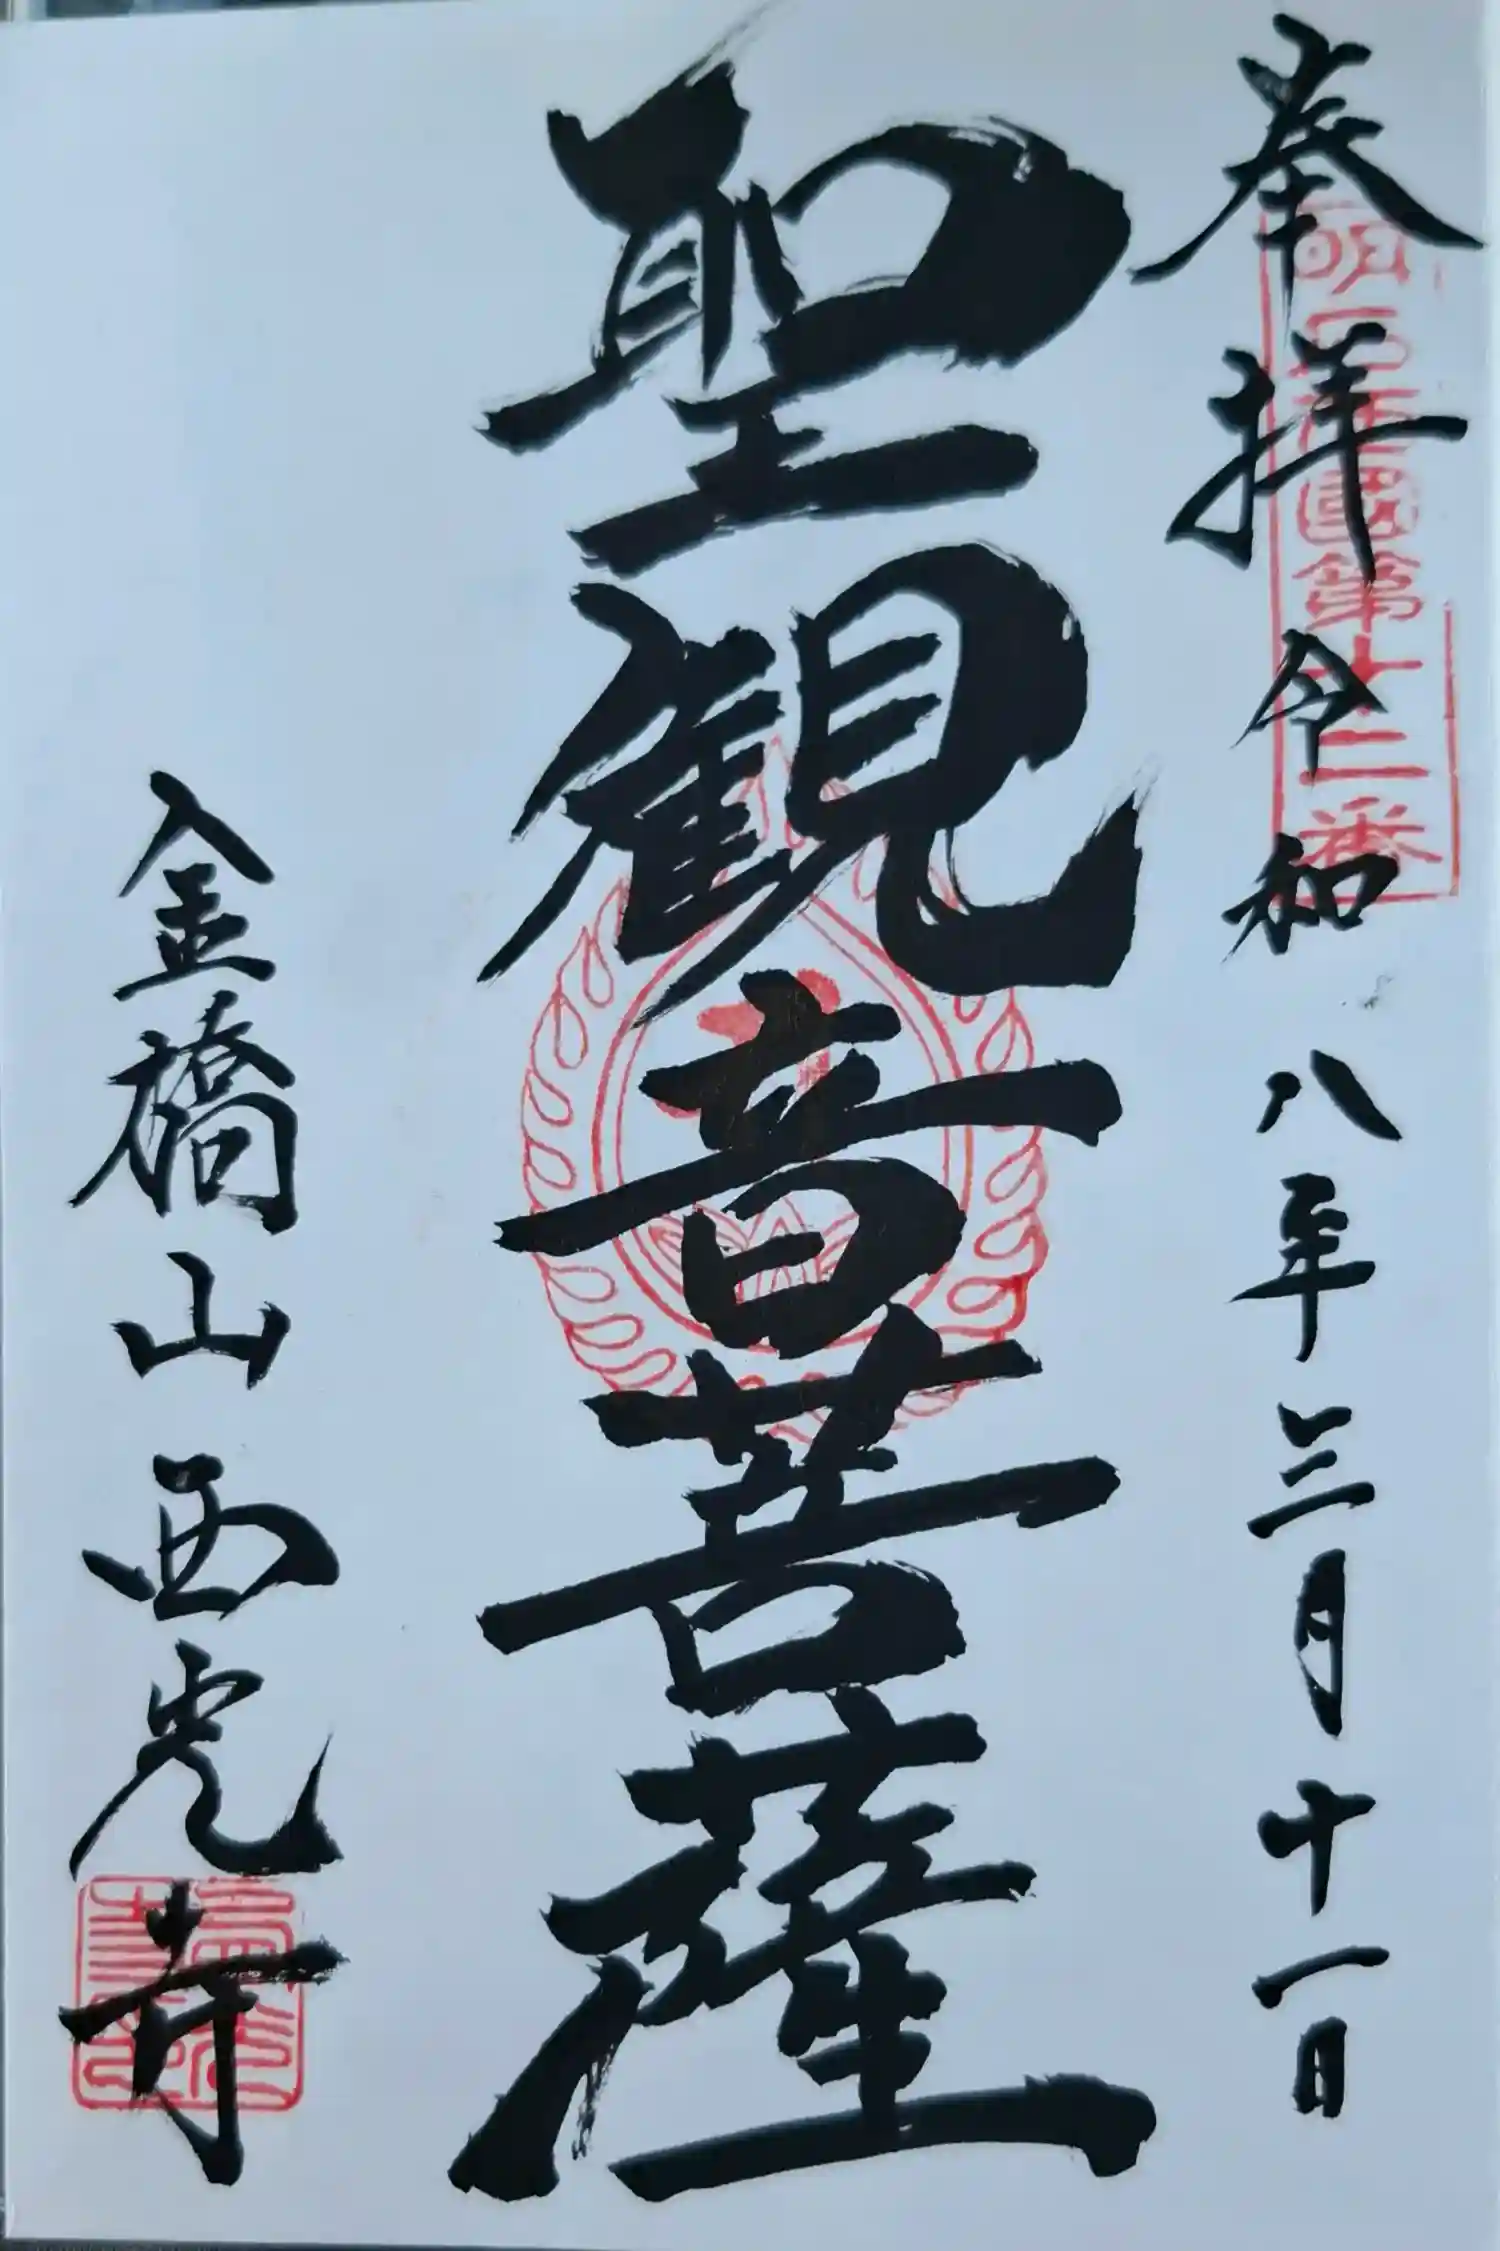 奉拝 令和八年三月十一日
聖観音菩薩
金橋山 西虎寺